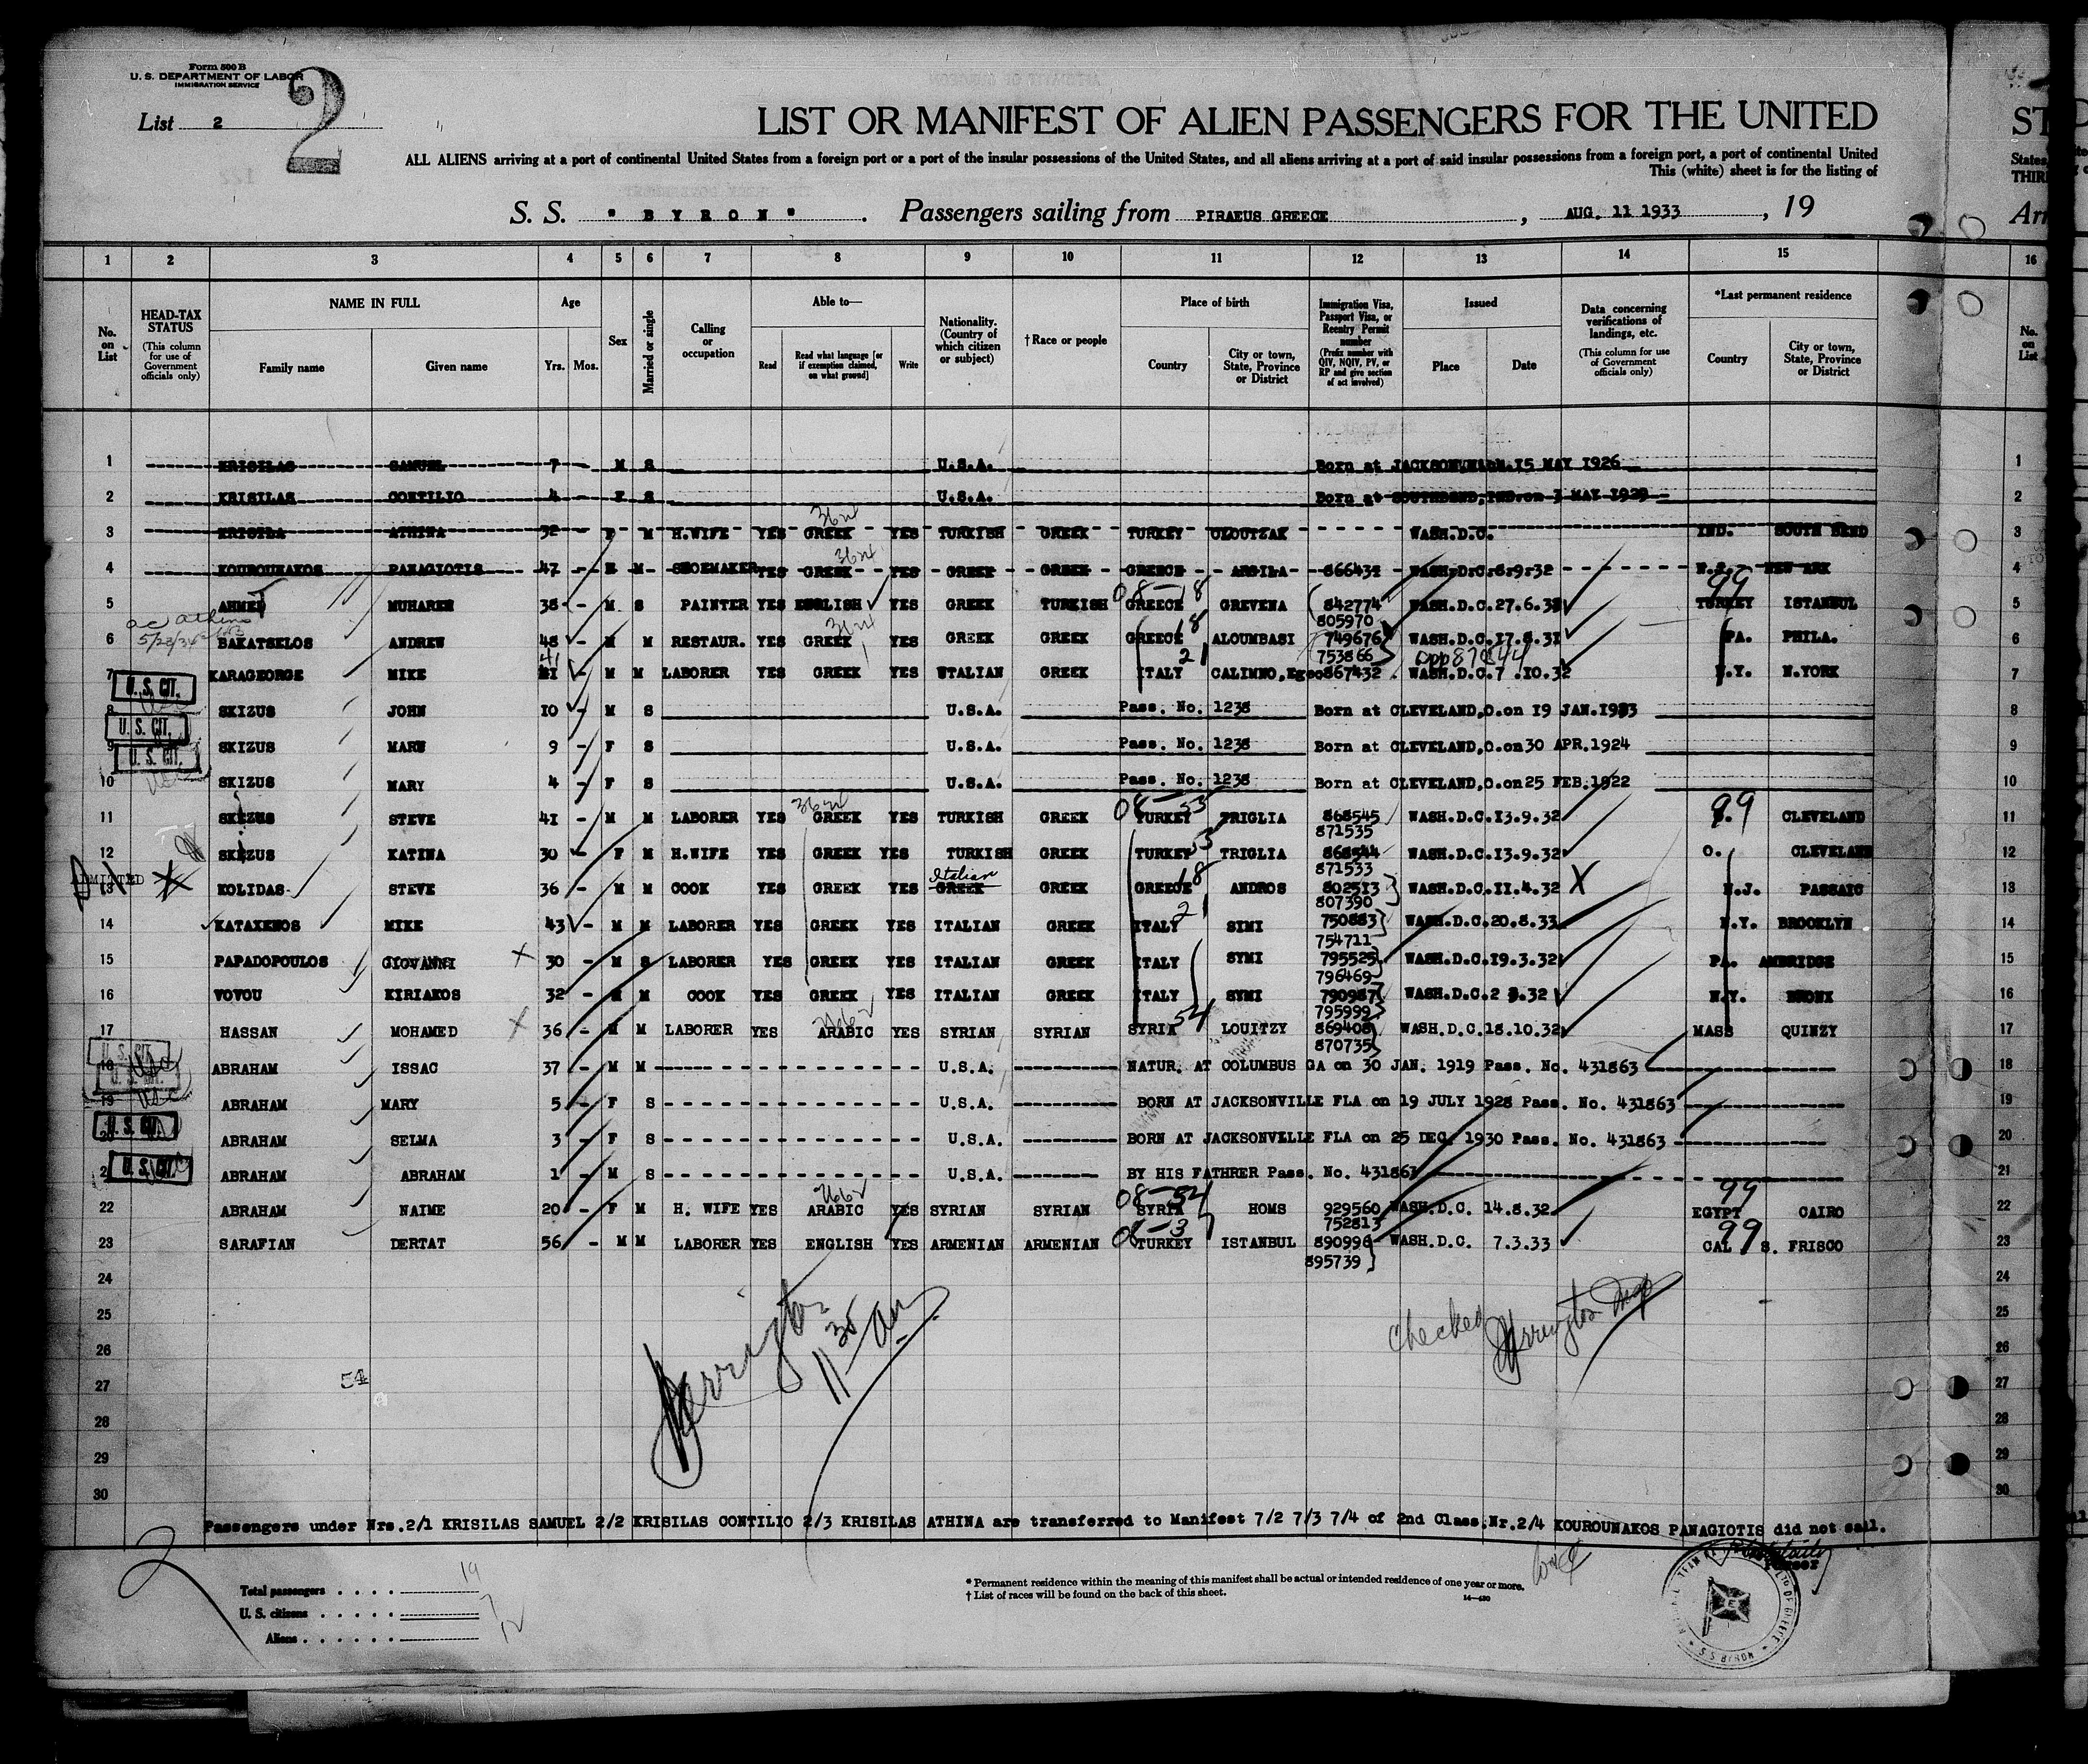 Form 500 B
U. S. DEPARTMENT OF LABOR
IMMIGRATION SERVICE
2
List 2
LIST OR MANIFEST OF ALIEN PASSENGERS FOR THE UNITED
ST
ALL ALIENS arriving at a port of continental United States from a foreign port or a port of the insular possessions of the United States, and all aliens arriving at a port of said insular possessions from a foreign port, a port of continental United
States,
This (white) sheet is for the listing of
THIR
S. S. "BYRON". Passengers sailing from PIRAEUS GREECE, AUG. 11 1933, 19
Arr
1 2 3 4 5 6 7 8 9 10 11 12 13 14 15 16
No. on List
HEAD-TAX STATUS (This column for use of Government officials only)
NAME IN FULL
Family name Given name
Age
Yrs. Mos.
Sex
Married or single
Calling or occupation
Able to—
Read Read what language [or if exemption claimed, on what ground] Write
Nationality. (Country of which citizen or subject)
† Race or people
Place of birth
Country City or town, State, Province or District
Immigration Visa, Passport Visa, or Reentry Permit number (Prefix number with QIV, NQIV, PV, or RP and give section of act involved)
Issued
Place Date
Data concerning verifications of landings, etc. (This column for use of Government officials only)
*Last permanent residence
Country City or town, State, Province or District
No. on List
1 KRISILAS SAMUEL 7 M S U.S.A. Born at 15 MAY 1926 1
2 KRISILAS CONTILIO 4 F S U.S.A. Born at SOUTHBEND, IND. on 3 MAY 1929 2
3 KRISILA ATHINA 32 F M H.WIFE YES GREEK YES TURKISH GREEK TURKEY OLOUTZAK WASH.D.C. IND. SOUTH BEND 3
4 KOUROUNAKOS PANAGIOTIS 47 M SHOEMAKER YES GREEK YES GREEK GREEK GREECE ARGILA 866432 WASH.D.C.8.9.32 NEW ARK 4
5 AHMED MUHAREM 38 - M S PAINTER YES ENGLISH YES GREEK TURKISH GREECE GREVENA 842774 WASH.D.C.27.6.32 TURKEY ISTANBUL 5
805970
ac athens
5/23/34
6 BAKATSELOS ANDREW 48 - M M RESTAUR. YES GREEK YES GREEK GREEK GREECE ALOUMBASI 749676 WASH.D.C.17.8.31 PA. PHILA. 6
753866
7 KARAGEORGE MIKE 41 - M M LABORER YES GREEK YES ITALIAN GREEK ITALY CALIMNO, Egeo 867432 WASH.D.C.7 .10.32 N.Y. N.YORK 7
U. S. CIT.
8 SKIZUS JOHN 10 - M S U.S.A. Pass. No. 1238 Born at CLEVELAND,O.on 19 JAN.1923 8
U. S. CIT.
9 SKIZUS MARY 9 - F S U.S.A. Pass. No. 1238 Born at CLEVELAND,O.on 30 APR.1924 9
U. S. CIT.
10 SKIZUS MARY 4 - F S U.S.A. Pass. No. 1238 Born at CLEVELAND,O.on 25 FEB.1922 10
11 SKEZUS STEVE 41 - M M LABORER YES GREEK YES TURKISH GREEK TURKEY TRIGLIA 868545 WASH.D.C.13.9.32 CLEVELAND 11
871535
12 SKEZUS KATINA 30 - F M H.WIFE YES GREEK YES TURKISH GREEK TURKEY TRIGLIA 868544 WASH.D.C.13.9.32 O. CLEVELAND 12
871533
ADMITTED
13 KOLIDAS STEVE 36 - M M COOK YES GREEK YES GREEK Italian GREEK GREECE ANDROS 802513 WASH.D.C.11.4.32 X N.J. PASSAIC 13
807390
14 KATAXENOS MIKE 43 - M M LABORER YES GREEK YES ITALIAN GREEK ITALY SIMI 750883 WASH.D.C.20.8.33 N.Y. BROOKLYN 14
754711
15 PAPADOPOULOS GIOVANNI 30 - M S LABORER YES GREEK YES ITALIAN GREEK ITALY SYMI 795525 WASH.D.C.19.3.32 PA. AMBRIDGE 15
796469
16 VOVOU KIRIAKOS 32 - M M COOK YES GREEK YES ITALIAN GREEK ITALY SYMI 790987 WASH.D.C.2 3.32 N.Y. BRONX 16
795999
17 HASSAN MOHAMED 36 - M M LABORER YES ARABIC YES SYRIAN SYRIAN SYRIA LOUITZY 869408 WASH.D.C.18.10.32 MASS QUINZY 17
870735
U. S. CIT.
18 ABRAHAM ISSAC 37 - M M U.S.A. NATUR. AT COLUMBUS GA on 30 JAN. 1919 Pass. No. 431863 18
U. S. CIT.
19 ABRAHAM MARY 5 - F S U.S.A. BORN AT JACKSONVILLE FLA on 19 JULY 1928 Pass. No. 431863 19
U. S. CIT.
20 ABRAHAM SELMA 3 - F S U.S.A. BORN AT JACKSONVELLE FLA on 25 DEC. 1930 Pass. No. 431863 20
U. S. CIT.
21 ABRAHAM ABRAHAM 1 - M S U.S.A. BY HIS FATHRER Pass. No. 431863 21
22 ABRAHAM NAIME 20 - F M H. WIFE YES ARABIC YES SYRIAN SYRIAN SYRIA HOMS 929560 WASH.D.C. 14.8.32 EGYPT CAIRO 22
752813
23 SARAFIAN DERTAT 56 - M M LABORER YES ENGLISH YES ARMENIAN ARMENIAN TURKEY ISTANBUL 890996 WASH.D.C. 7.3.33 CAL S. FRISCO 23
895739
24 24
25 25
26 26
27 54 27
28 28
29 29
30 30
11 30 am
Checked
Passengers under Nrs.2/1 KRISILAS SAMUEL 2/2 KRISILAS CONTILIO 2/3 KRISILAS ATHINA are transferred to Manifest 7/2 7/3 7/4 of 2nd Class.Nr.2/4 KOUROUNAKOS PANAGIOTIS did not sail.
Purser
2
Total passengers . . . . 19
U. S. citizens . . . . . 7
Aliens . . . . . . 12
* Permanent residence within the meaning of this manifest shall be actual or intended residence of one year or more.
† List of races will be found on the back of this sheet.
14—430
S.S BYRON